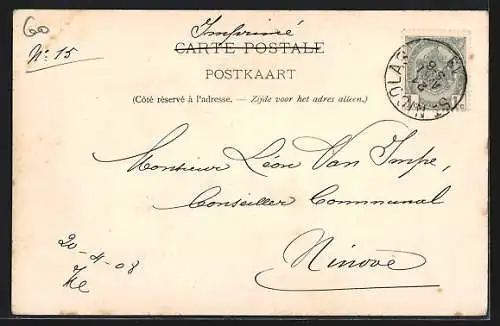 60
Imprimé
N: 15
CARTE POSTALE
POSTKAART
(Côté réservé à l'adresse. — Zijde voor het adres alleen.)
Monsieur Léon Van Impe,
Conseiller Communal
Ninove
20-4-08